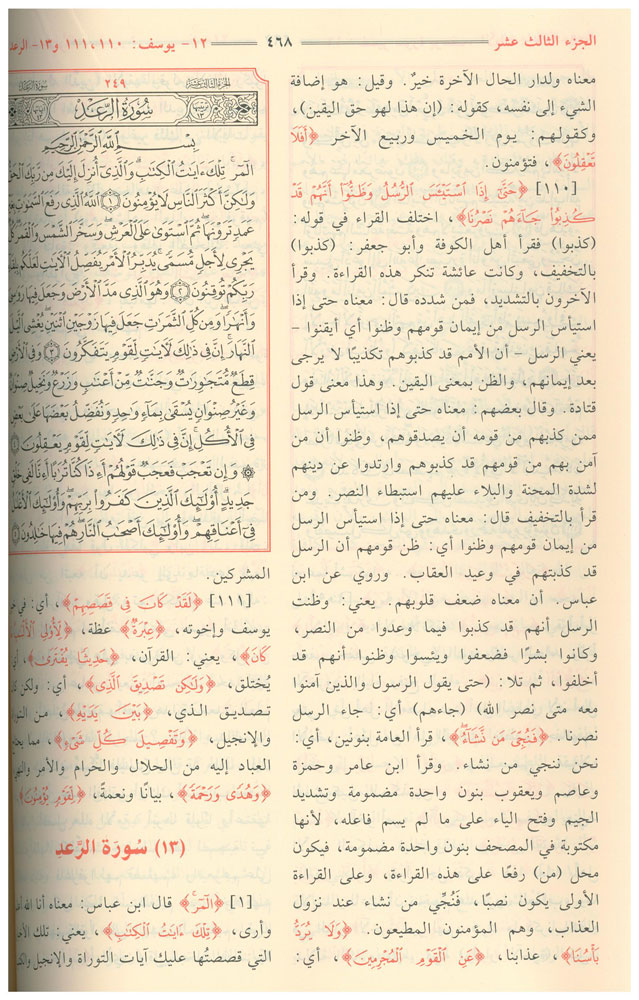 الجزء الثالث عشر
٤٦٨
١٢- يوسف: ١١٠، ١١١ و١٣- الرعد
معناه ولدار الحال الآخرة خيرٌ. وقيل: هو إضافة
الشيء إلى نفسه، كقوله: (إن هذا لهو حق اليقين)،
وكقولهم: يوم الخميس وربيع الآخر ﴿أَفَلَا
تَعْقِلُونَ﴾، فتؤمنون.
[١١٠] ﴿حَتَّىٰ إِذَا اسْتَيْئَسَ الرُّسُلُ وَظَنُّوا أَنَّهُمْ قَدْ
كُذِبُوا جَاءَهُمْ نَصْرُنَا﴾، اختلف القراء في قوله:
(كذبوا) فقرأ أهل الكوفة وأبو جعفر: (كذبوا)
بالتخفيف، وكانت عائشة تنكر هذه القراءة. وقرأ
الآخرون بالتشديد، فمن شدده قال: معناه حتى إذا
استيأس الرسل من إيمان قومهم وظنوا أي أيقنوا -
يعني الرسل - أن الأمم قد كذبوهم تكذيبًا لا يرجى
بعد إيمانهم، والظن بمعنى اليقين. وهذا معنى قول
قتادة. وقال بعضهم: معناه حتى إذا استيأس الرسل
ممن كذبهم من قومه أن يصدقوهم، وظنوا أن من
آمن بهم من قومهم قد كذبوهم وارتدوا عن دينهم
لشدة المحنة والبلاء عليهم استبطاء النصر. ومن
قرأ بالتخفيف قال: معناه حتى إذا استيأس الرسل
من إيمان قومهم وظنوا أي: ظن قومهم أن الرسل
قد كذبتهم في وعيد العقاب. وروي عن ابن
عباس. أن معناه ضعف قلوبهم. يعني: وظنت
الرسل أنهم قد كذبوا فيما وعدوا من النصر،
وكانوا بشرًا فضعفوا ويئسوا وظنوا أنهم قد
أخلفوا، ثم تلا: (حتى يقول الرسول والذين آمنوا
معه متى نصر الله) (جاءهم) أي: جاء الرسل
نصرنا. ﴿فَنُجِّيَ مَن نَّشَاءُ﴾، قرأ العامة بنونين، أي:
نحن ننجي من نشاء. وقرأ ابن عامر وحمزة
وعاصم ويعقوب بنون واحدة مضمومة وتشديد
الجيم وفتح الياء على ما لم يسم فاعله، لأنها
مكتوبة في المصحف بنون واحدة مضمومة، فيكون
محل (من) رفعًا على هذه القراءة، وعلى القراءة
الأولى يكون نصبًا، فَنُجِّي من نشاء عند نزول
العذاب، وهم المؤمنون المطيعون. ﴿وَلَا يُرَدُّ
بَأْسُنَا﴾، عذابنا، ﴿عَنِ الْقَوْمِ الْمُجْرِمِينَ﴾، أي:
الجزء الثالث عشر
٢٤٩
سورة الرعد
سُورَةُ الرَّعْدِ
بِسْمِ اللَّهِ الرَّحْمَٰنِ الرَّحِيمِ
الٓمٓر ۚ تِلْكَ ءَايَٰتُ الْكِتَٰبِ ۗ وَالَّذِىٓ أُنزِلَ إِلَيْكَ مِن رَّبِّكَ الْحَقُّ
وَلَٰكِنَّ أَكْثَرَ النَّاسِ لَا يُؤْمِنُونَ ١ اللَّهُ الَّذِى رَفَعَ السَّمَٰوَٰتِ
عَمَدٍ تَرَوْنَهَا ۖ ثُمَّ اسْتَوَىٰ عَلَى الْعَرْشِ ۖ وَسَخَّرَ الشَّمْسَ وَالْقَمَرَ
يَجْرِى لِأَجَلٍ مُّسَمًّى ۚ يُدَبِّرُ الْأَمْرَ يُفَصِّلُ الْءَايَٰتِ لَعَلَّكُم
رَبِّكُمْ تُوقِنُونَ ٢ وَهُوَ الَّذِى مَدَّ الْأَرْضَ وَجَعَلَ فِيهَا
وَأَنْهَٰرًا ۖ وَمِن كُلِّ الثَّمَرَٰتِ جَعَلَ فِيهَا زَوْجَيْنِ اثْنَيْنِ ۖ يُغْشِى
النَّهَارَ ۚ إِنَّ فِى ذَٰلِكَ لَءَايَٰتٍ لِّقَوْمٍ يَتَفَكَّرُونَ ٣ وَفِى
قِطَعٌ مُّتَجَٰوِرَٰتٌ وَجَنَّٰتٌ مِّنْ أَعْنَٰبٍ وَزَرْعٌ وَنَخِيلٌ
وَغَيْرُ صِنْوَانٍ يُسْقَىٰ بِمَآءٍ وَٰحِدٍ وَنُفَضِّلُ بَعْضَهَا عَلَىٰ
فِى الْأُكُلِ ۚ إِنَّ فِى ذَٰلِكَ لَءَايَٰتٍ لِّقَوْمٍ يَعْقِلُونَ
۞ وَإِن تَعْجَبْ فَعَجَبٌ قَوْلُهُمْ أَءِذَا كُنَّا تُرَٰبًا أَءِنَّا لَفِى
جَدِيدٍ ۗ أُولَٰٓئِكَ الَّذِينَ كَفَرُوا بِرَبِّهِمْ ۖ وَأُولَٰٓئِكَ
فِىٓ أَعْنَاقِهِمْ ۖ وَأُولَٰٓئِكَ أَصْحَٰبُ النَّارِ ۖ هُمْ فِيهَا خَٰلِدُونَ
المشركين.
[١١١] ﴿لَقَدْ كَانَ فِى قَصَصِهِمْ﴾، أي: في
يوسف وإخوته، ﴿عِبْرَةٌ﴾ عظة، ﴿لِّأُولِى
كَانَ﴾، يعني: القرآن، ﴿حَدِيثًا يُفْتَرَىٰ﴾،
يُختلق، ﴿وَلَٰكِن تَصْدِيقَ الَّذِى﴾، أي: ولكن
تصديق الذي، ﴿بَيْنَ يَدَيْهِ﴾، من
والإنجيل، ﴿وَتَفْصِيلَ كُلِّ شَىْءٍ﴾، مما
العباد إليه من الحلال والحرام والأمر
﴿وَهُدًى وَرَحْمَةً﴾، بيانًا ونعمةً، ﴿لِّقَوْمٍ يُؤْمِنُونَ﴾.
(١٣) سُورَة الرَّعدِ
[١] ﴿الٓمٓر﴾ قال ابن عباس: معناه أنا الله
وأرى، ﴿تِلْكَ ءَايَٰتُ الْكِتَٰبِ﴾، يعني: تلك
التي قصصتُها عليك آيات التوراة والإنجيل